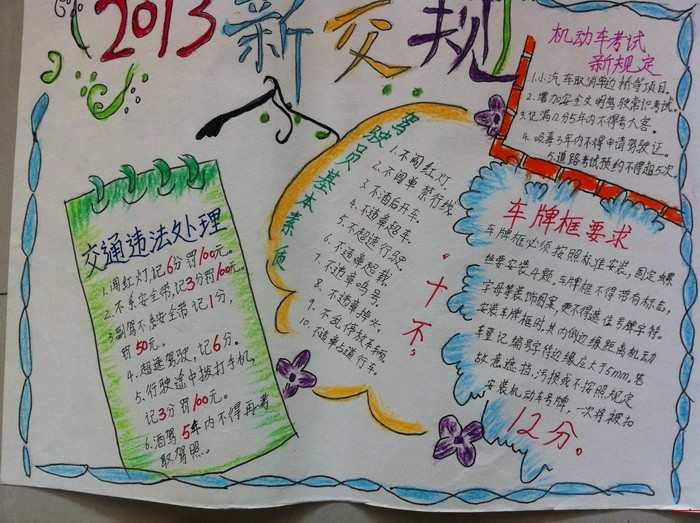 2013新交规
交通违法处理
1.闯红灯,记6分罚100元。
2.不系安全带,记3分罚100元。
3.副驾不系安全带记1分,
罚50元。
4.超速驾驶,记6分。
5.行驶途中拨打手机,
记3分罚100元。
6.酒驾5年内不得再考
取驾照。
驾驶员基本素质
1.不闯红灯.
2.不闯单禁行线.
3.不酒后开车.
4.不违章超车.
5.不超速行驶.
6.不违章超载.
7.不违章鸣号.
8.不违章掉头.
9.不乱停放车辆.
10.不违章占道行车.
"十不"
机动车考试
新规定
1.小汽车取消单边桥等项目.
2.增加安全文明驾驶常识考试.
3.记满12分5年内不得考大客.
4.吸毒3年内不得申请驾驶证.
5.道路考试预约不得超5次.
车牌框要求
车牌框必须按照标准安装,固定螺
丝要安装4颗.车牌框不得带有标志,
字母等装饰图案,更不得遮住号牌字符.
安装车牌框时,其内侧边缘距离机动
车登记编号字符边缘应大于5mm,若
故意遮挡,污损或不按照规定
安装机动车号牌,一次将被扣
12分。